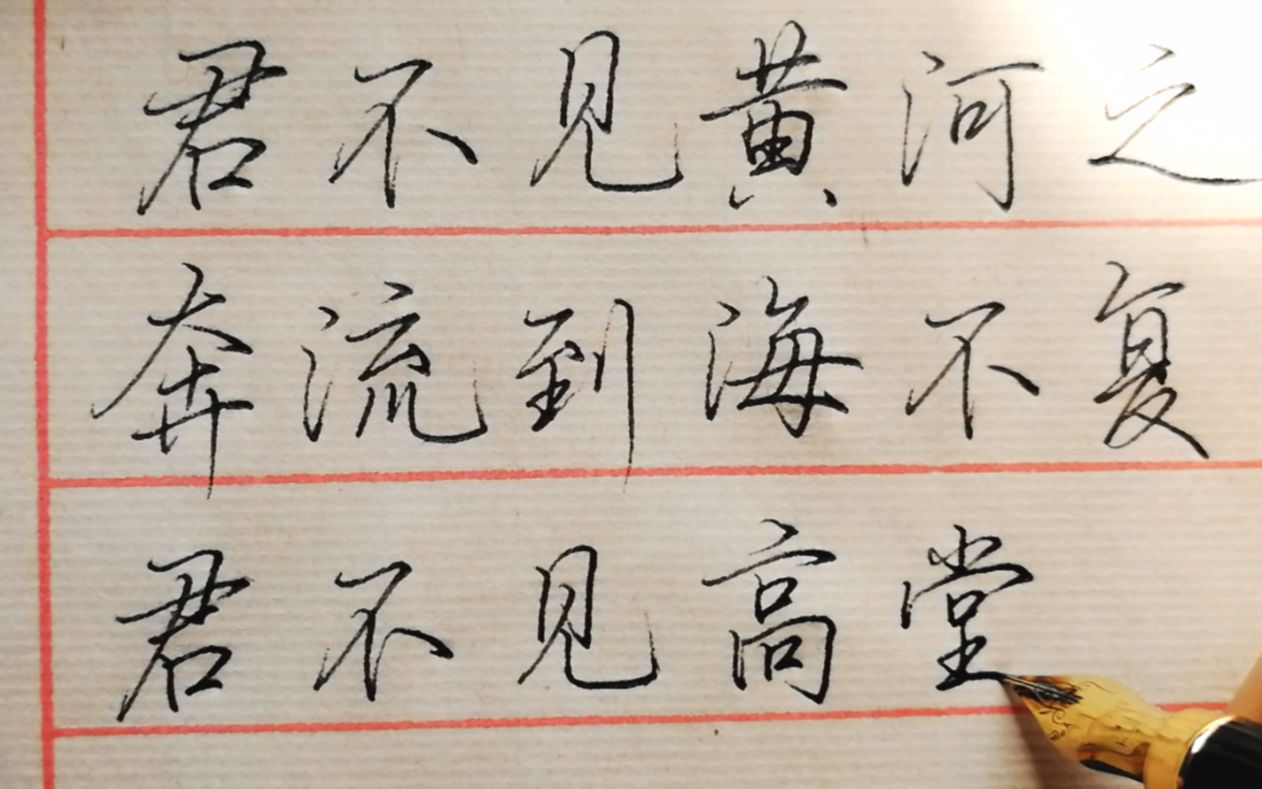 君不见黄河之
奔流到海不复
君不见高堂